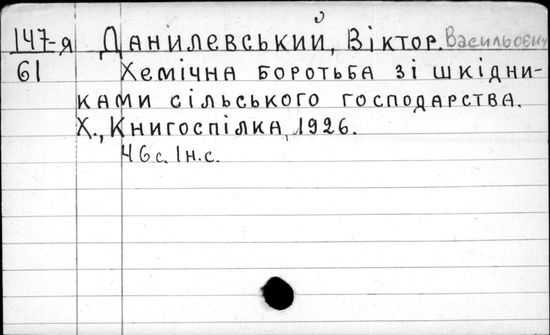 147-я Данилевський, Віктор. Васильович
61 Хемічна боротьба зі шкідни-
ками сільського господарства.
Х., Книгоспілка, 1926.
46 с. Ін. с.